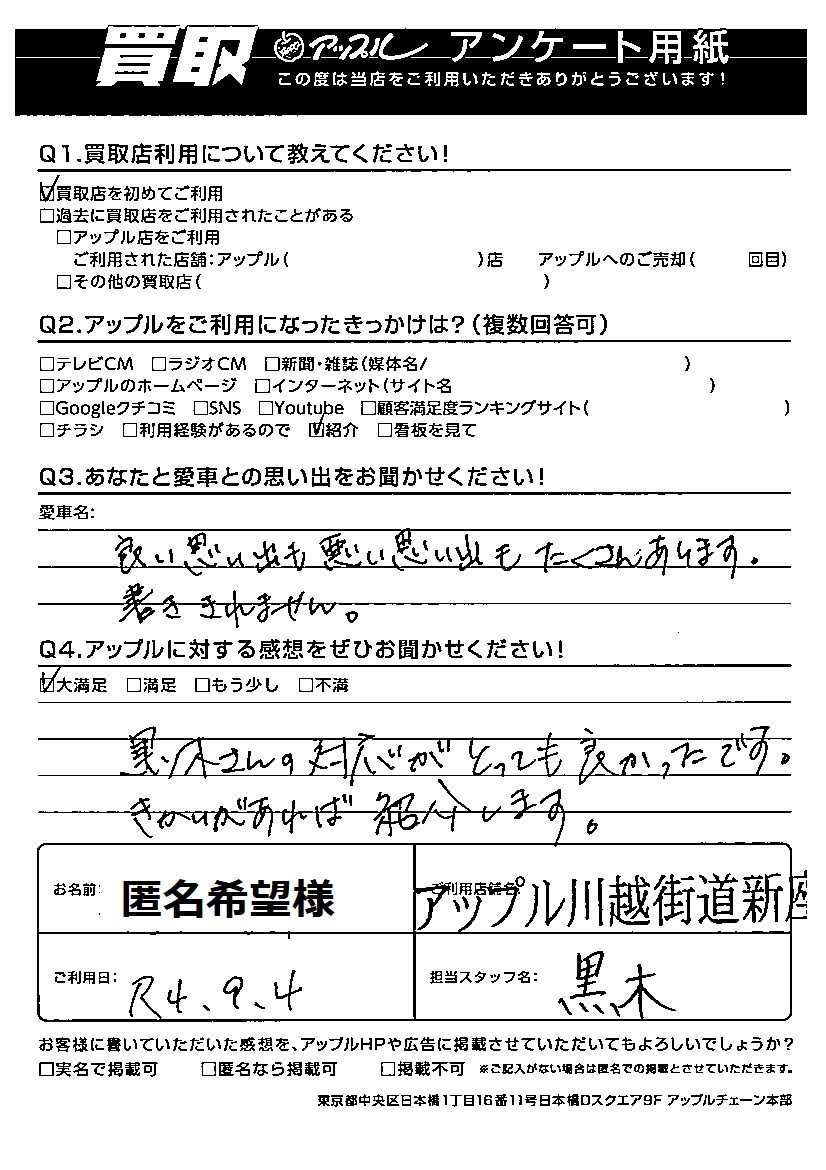 買取 アップル アンケート用紙
この度は当店をご利用いただきありがとうございます!
Q1.買取店利用について教えてください!
☑買取店を初めてご利用
□過去に買取店をご利用されたことがある
□アップル店をご利用
ご利用された店舗:アップル( )店 アップルへのご売却( 回目)
□その他の買取店( )
Q2.アップルをご利用になったきっかけは?(複数回答可)
□テレビCM □ラジオCM □新聞・雑誌(媒体名/ )
□アップルのホームページ □インターネット(サイト名 )
□Googleクチコミ □SNS □Youtube □顧客満足度ランキングサイト( )
□チラシ □利用経験があるので ☑紹介 □看板を見て
Q3.あなたと愛車との思い出をお聞かせください!
愛車名:
良い思い出も悪い思い出もたくさんあります。
書ききれません。
Q4.アップルに対する感想をぜひお聞かせください!
☑大満足 □満足 □もう少し □不満
黒木さんの対応がとっても良かったです。
きかいがあれば紹介します。
お名前: 匿名希望様 ご利用店舗名: アップル川越街道新座
ご利用日: R4.9.4 担当スタッフ名: 黒木
お客様に書いていただいた感想を、アップルHPや広告に掲載させていただいてもよろしいでしょうか?
□実名で掲載可 □匿名なら掲載可 □掲載不可 ※ご記入がない場合は匿名での掲載とさせていただきます。
東京都中央区日本橋1丁目16番11号日本橋Dスクエア9F アップルチェーン本部